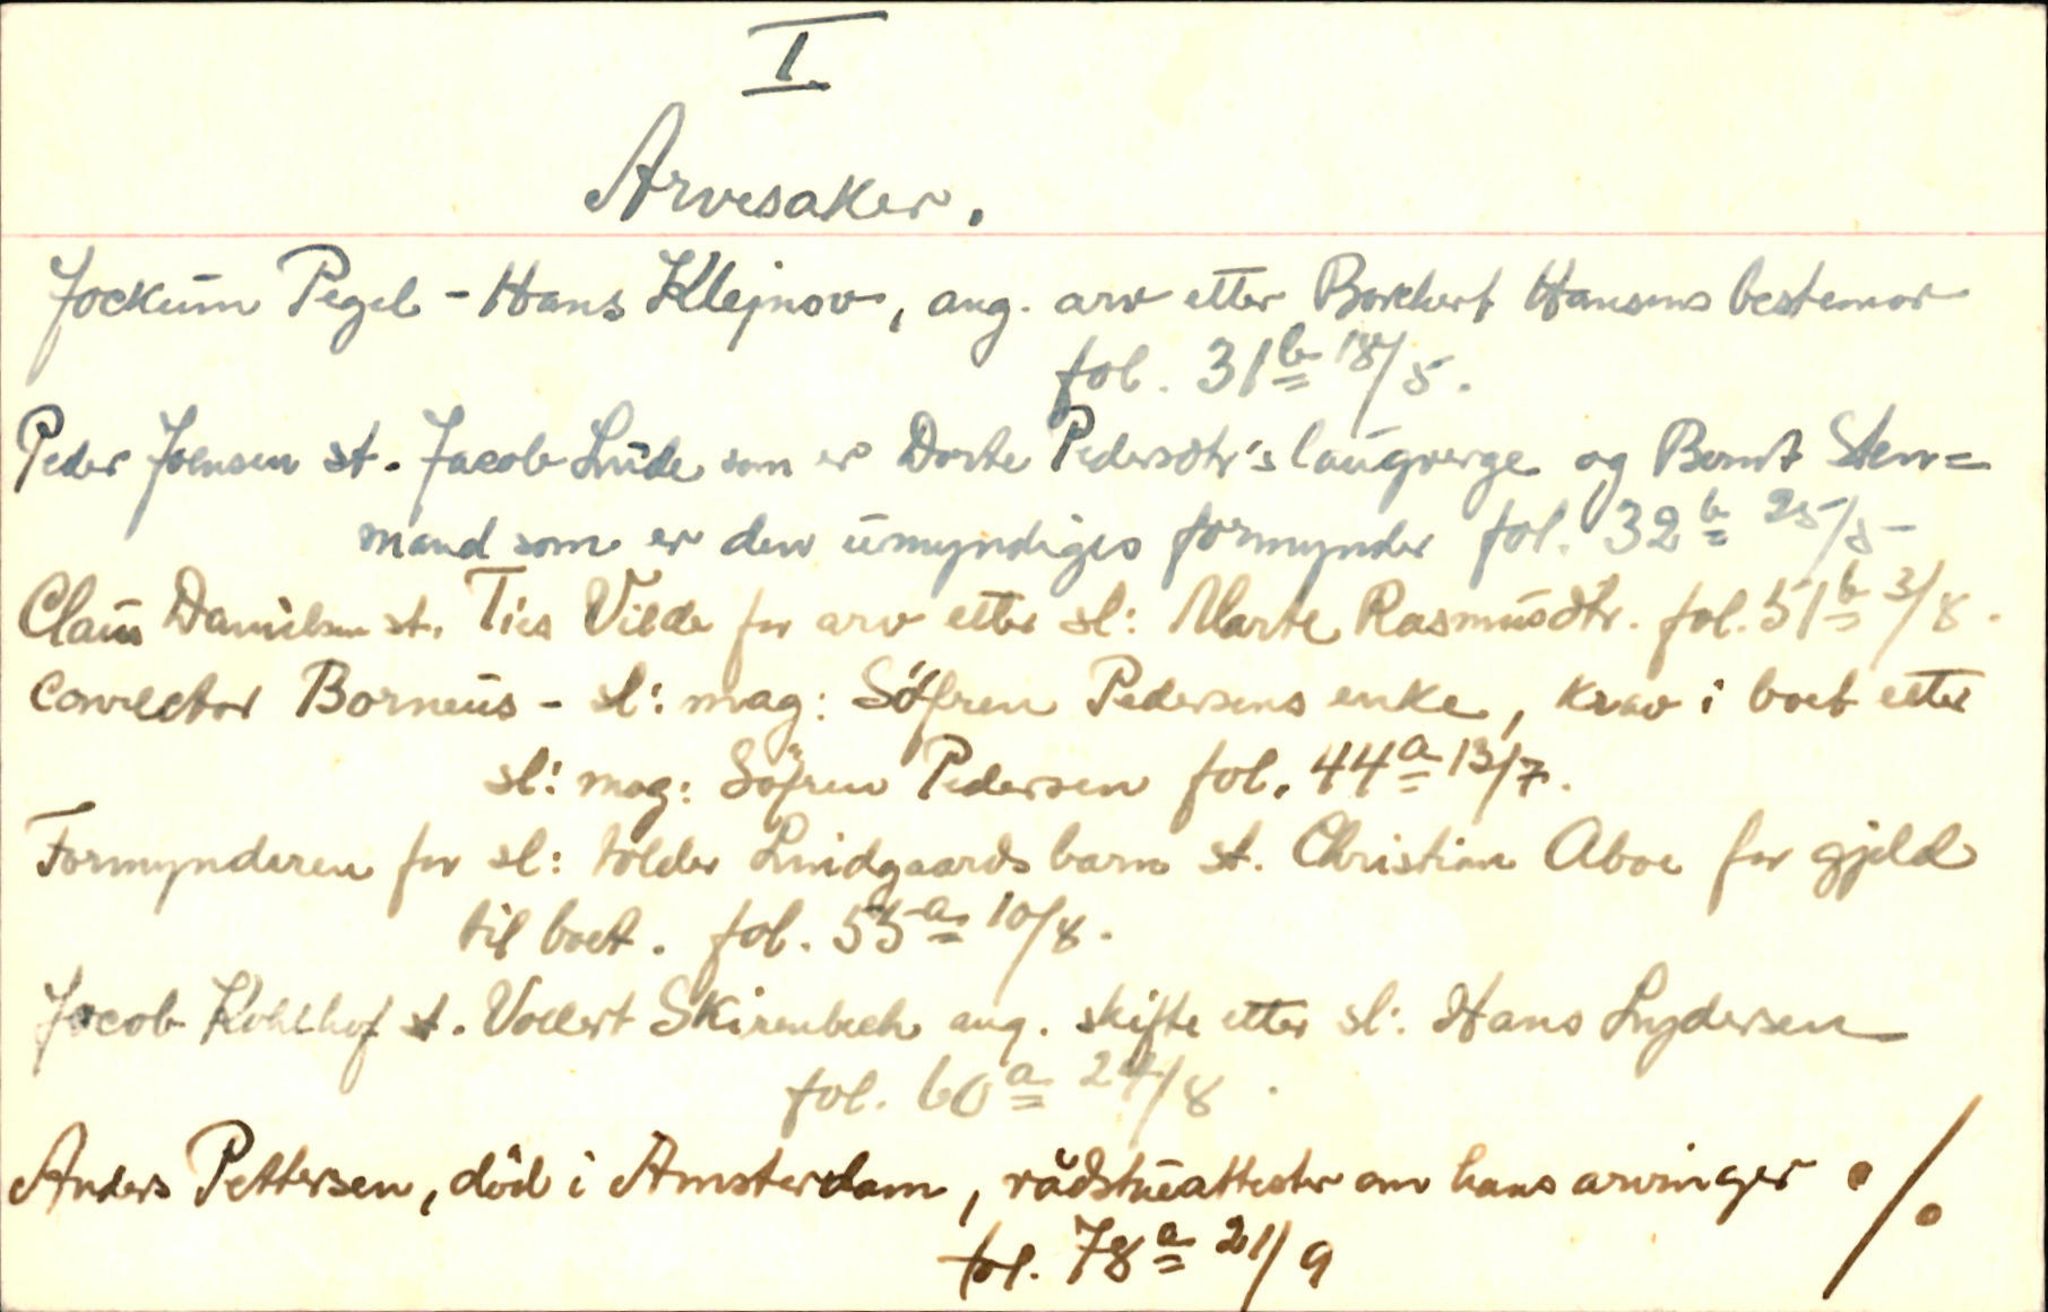 I
Arvesaker.
Jockum Pegel - Hans Klejnov, ang. arv etter Borchert Hansens bestemor
fol. 31b 18/5.
Peder Joensen st. Jacob Lude som er Dorte Pedersdtr's laugverge og Bernt Sten=
mand som er den umyndiges formynder fol. 32b 25/5
Claus Danielsen st. Ties Vilde for arv etter sl: Marte Rasmusdtr. fol. 51b 3/8.
Conrector Borneus - sl: mag: Söfren Pedersens enke, krav i boet etter
sl: mag: Söfren Pedersen fol. 44a 13/7.
Formynderen for sl: tolder Lindgaards barn st. Christian Aboe for gjeld
til boet. fol. 55a 10/8.
Jacob Kohlhof st. Vollert Skirenbech ang. skifte etter sl: Hans Lydersen
fol. 60a 24/8.
Anders Pettersen, död i Amsterdam, rådstueattester om hans arvinger ./.
fol. 78a 21/9